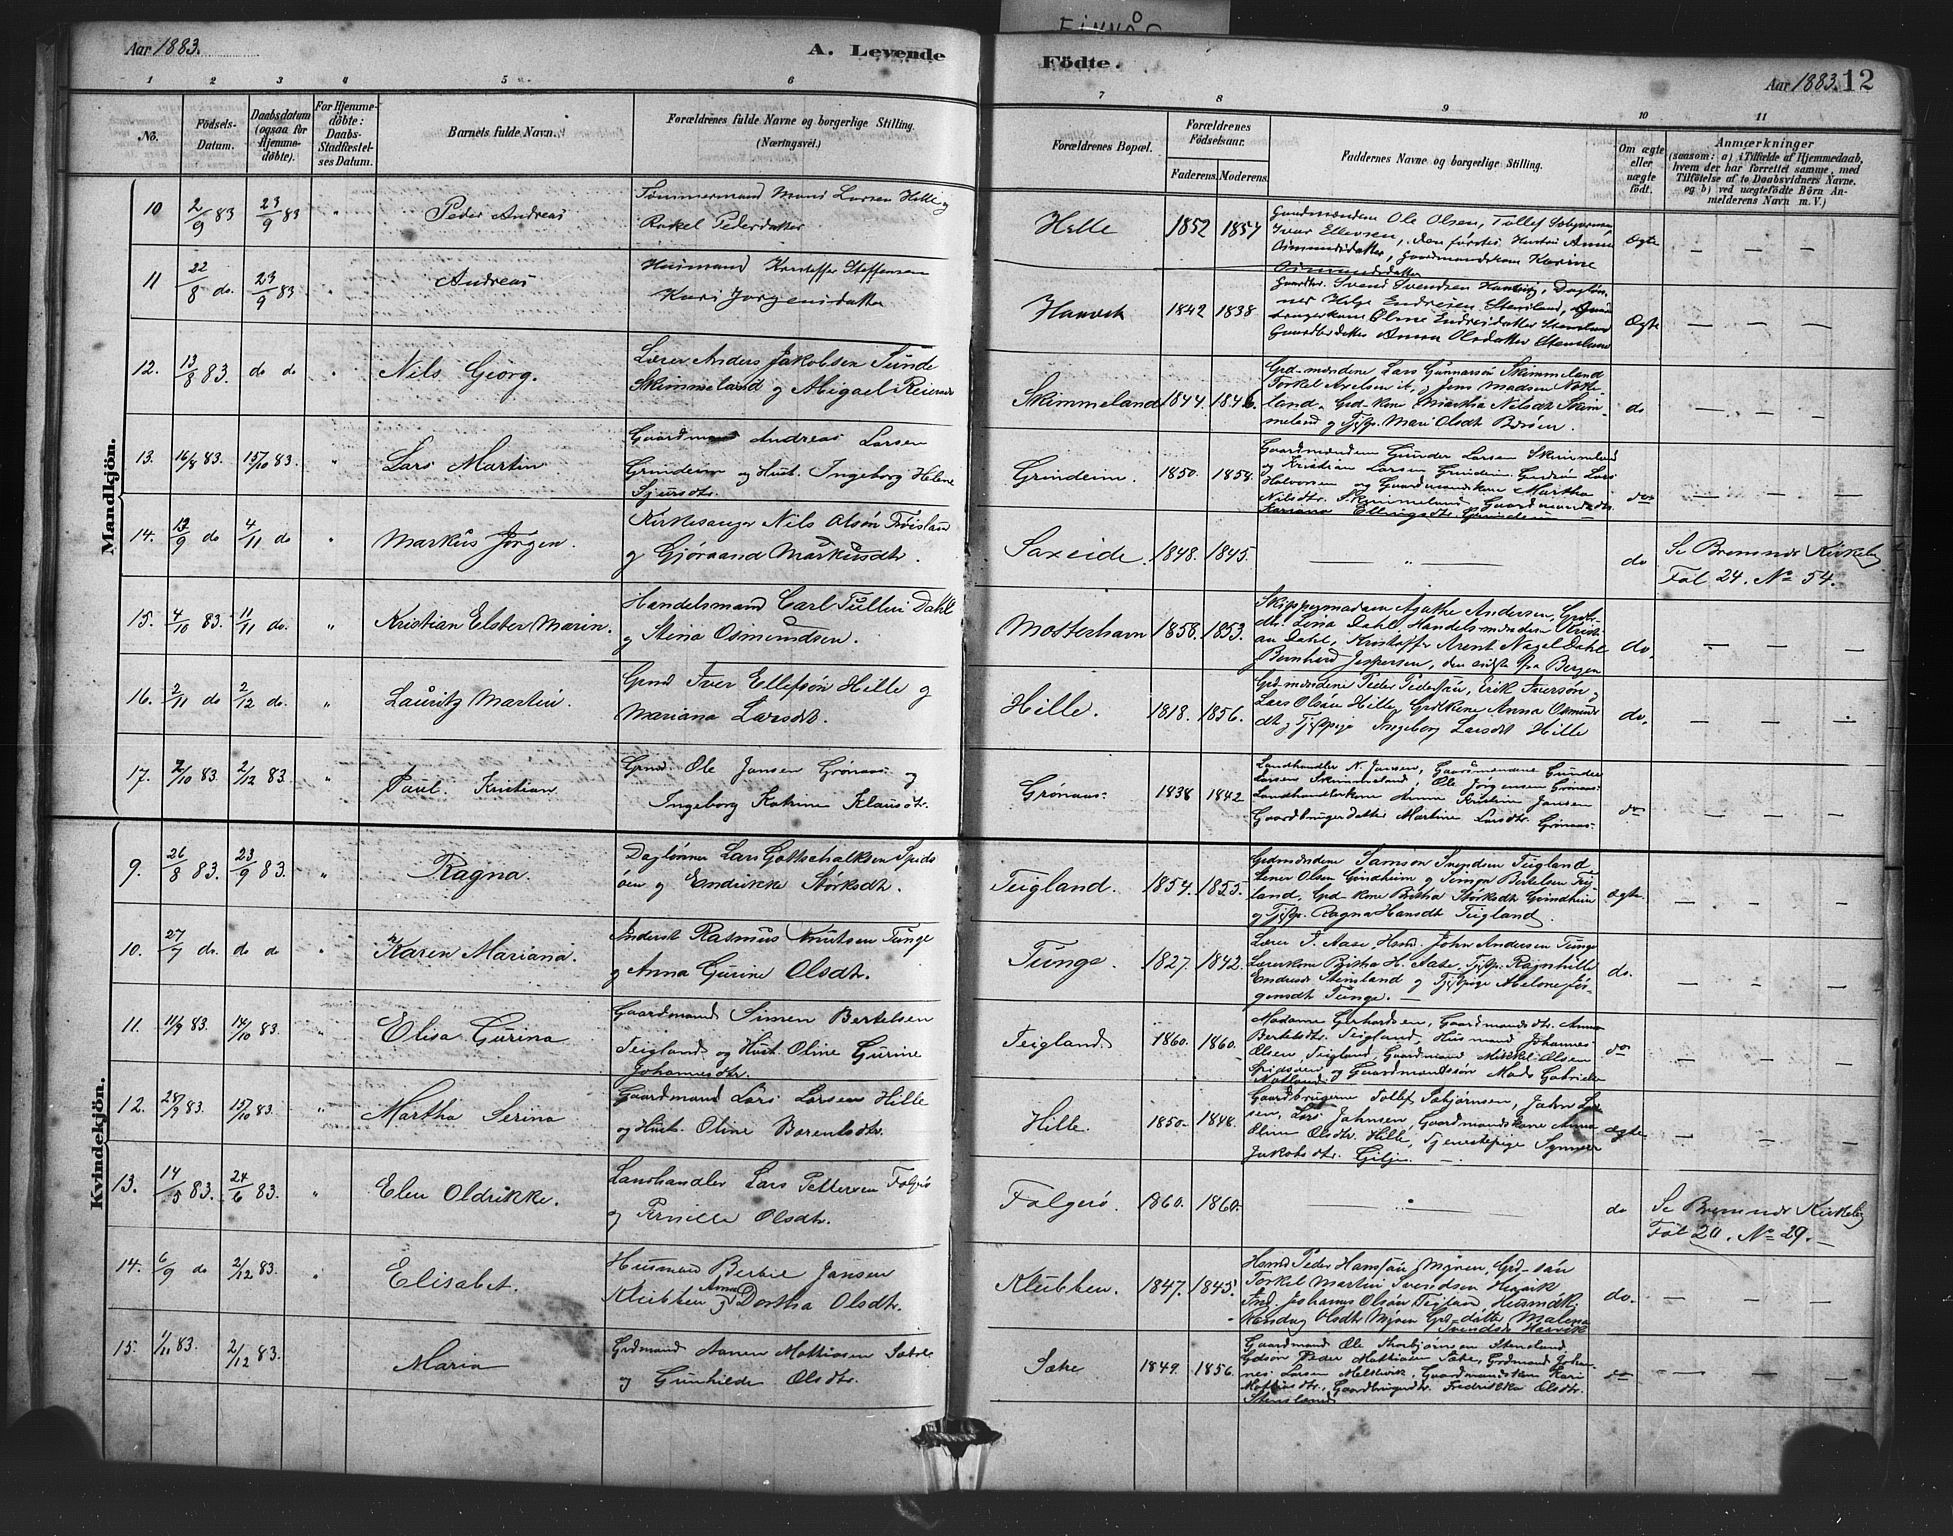 FINNÅS
Aar 1883.
A. Levende
Födte.
Aar 1883. 12
1 2 3 4 5 6 7 8 9 10 11
No.
Födsels-Datum.
Daabsdatum (ogsaa for Hjemme-döbte).
For Hjemme-döbte: Daabs-Stadfæstel-ses Datum.
Barnets fulde Navn.
Forældrenes fulde Navne og borgerlige Stilling.
(Næringsvei.)
Forældrenes Bopæl.
Forældrenes Födselsaar.
Faderens. Moderens.
Faddernes Navne og borgerlige Stilling.
Om ægte eller uægte födt.
Anmærkninger
(saasom: a) i Tilfælde af Hjemmedaab, hvem der har forrettet samme, med Tilföielse af to Daabsvidners Navne, og b) ved uægtefödte Börn An-melderens Navn m. V.)
Mandkjön.
10 2/9 83 23/9 83 " Peder Andreas
Tømmermand Mons Larsen Hille og
Rakel Pedersdatter
Hille 1852 1854
Gaardmændene Ole Olsen, Tollef
Ivar Ellevsen, den førstes Hustru Anna
Osmundsdatter, Gaardmandskone Karine
Osmundsdatter
Ægte — — —
11 22/8 do. 23/9 83 " Andreas
Husmand Kristoffer Steffensen
Kari Jørgensdatter
Haavik 1842 1838
Svend Svendsen Haavig,
Helge Endresen Stensland,
Oline Endresdatter Stensland
Anna Olsdatter Stensland
Ægte — — —
12. 13/8 83. do do " Nils Georg.
Lærer Anders Jakobsen Sunde
Skimmeland og Abigael
Skimmeland 1844. 1846.
Grd-mændene Lars Gunnarsøn Skimmeland
Torkel Axelsen ib. og Jens Madsen
land. Grd-kone Martha Nilsdt Skim-
meland og Tjstp. Mari Olsdt
do — — —
13. 16/8 83. 15/10 83. " Lars Martin
Gaardmand Andreas Larsen
Grindeim og Hust. Ingeborg Helene
Sjursdtr.
Grindeim. 1850. 1854.
Gaardmændene Gunder Larsen Skimmeland
og Kristian Larsen Grindeim. Lars
Halvorsen og Gaardmandskone Martha
Nilsdtr. Skimmeland, Gaardmandsdtr.
Mariana Ellingsdtr. Grindeim
do — — —
14. 13/9 do 4/11 do " Markus Jørgen.
Kirkesanger Nils Olsøn
og Gjøraand Markusdtr.
Saxeide. 1848. 1845.
— " — do
Se Bremnes Kirkebog
Fol 24. No 54.
15. 4/10 83. 11/11 do. " Kristian Elster Marin.
Handelsmand Carl Tullin Dahl
og Stina Osmundsen.
Mosterhavn 1858. 1853.
Skippermadam Agathe Andersen,
dtr. Lina Dahl, Handelsmændene Kristi-
an Dahl, Kristoffer Arent Nagel Dahl
Bernhard Jespersen, den sidste fra Bergen
do. — — —
16. 2/11 do 2/12 do. " Lauritz Martin.
Grmd Iver Ellefsøn Hille og
Mariana Larsdt.
Hille. 1818. 1856.
Grd-mændene Peder Pedersøn, Erik Iversøn og
Lars Olsøn Hille, Grdkone Anna Osmunds
dt og Tjstpige Ingeborg Larsdt Hille
do. — — —
17. 2/10 83. 2/12 83. " Paul Kristian
Grmd. Ole Jansen Grønaas og
Ingeborg Katrine Klausdtr.
Grønaas. 1838 1842
Landhandler N. Jansen, Gaardmændene Gunder
Larsen Skimmeland, Ole Jørgensen Grønaas
Landhandlerkone Anna Kristine Jansen
Gaardbrugerdatter Martine Larsdtr. Grinaas.
do — — —
Kvindekjön.
9. 26/8 83. 23/9 83. " Ragna.
Daglønner Lars Gottschalksen Spids
øen og Endrikke Størksdt.
Teigland. 1854. 1855.
Grdmændene Samson Svendsen Teigland
Olsen Grindheim og Simon Bertelsen Teig
land, Grd kone Britha Størksdt Grindheim
og Tjstp. Ragna Hansdt Teigland.
ægte. — — —
10. 27/7 do. do do " Karen Mariana.
Inderst Rasmus Knutsen Tunge
og Anna Gurine Olsdt.
Tunge. 1827. 1842.
Lærer J. Aase Husmd. John Andersen Tunge
Lærerkone Britha H. Aase, Tjstp. Ragnhilde
Endresdt Stensland og Tjstpige Abelone Jør-
gensdt Tunge.
do. — — —
11. 11/9 83. 14/10 83. " Elisa Gurina
Gaardmand Simen Bertelsen
Teigland og Hust. Oline Gurine
Johannesdtr.
Teigland. 1860. 1860.
Madame Gerhardsen, Gaardmandsdtr. Anna
Bertelsdtr. Teigland, Husmand Johannes
Olsen Teigland, Gaardmand Mikkel Olsen
Spidsøen og Gaardmandssøn Mads Gabriel
Notland.
do — — —
12. 28/9 83. 15/10 83. " Martha Serina
Gaardmand Lars Larsen Hille
og Hust. Oline Barentsdtr.
Hille. 1850. 1848.
Gaardbrugerne Tollef Tobjørnsen, John Lar-
sen, Lars Johnsen, Gaardmandskone Anna
Oline Olsdtr. Hille, Tjenestepige Synneva
Jakobsdtr. Gilje.
ægte — — —
13. 14/5 83. 24/6 83. " Elen Oldrikke.
Landhandler Lars Pettersen Folgerø
og Pernille Olsdtr.
Folgerø. 1860. 1860.
— " — do
Se Bremnes Kirkebog
Fol 20. No 29.
14. 6/9 do 2/12 83. " Elisabet.
Husmand Bertil Jansen
Klubben og Anna Dortha Olsdtr.
Klubben. 1847. 1845.
Husmd Peder Hansøn Myren, Grd-søn
Torkel Martin Svendsen Haavik
Ind. Johannes Olsøn Teigland, Husmdk.
Olsdtr Myren Grd-datter Malena
Svendsdt Haavik
do. — — —
15. 1/11 83. 2/12 83. Maria
Grdmand Aanen Mathiasen Sætre
og Gunhilde Olsdtr.
Sætre 1849. 1856.
Gaardmand Ole Thorbjørnsen Stensland
Gdsøn Peder Mathiasen Sætre, Grdmand Johan-
nes Larsen Melkevik, Gaardmandskone Kari
Mathiasdtr. Gaardbrugerdtr. Fredrikke Olsdtr.
Stensland
do — — —